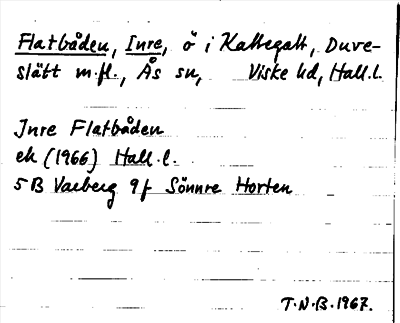 Flatbåden, Inre, ö i Kattegatt, Duve-
slätt m.fl., Ås sn, Viske hd, Hall.l.
Inre Flatbåden
ek (1966) Hall.l.
5B Varberg 9f Sönnre Horten
T.N.B. 1967.